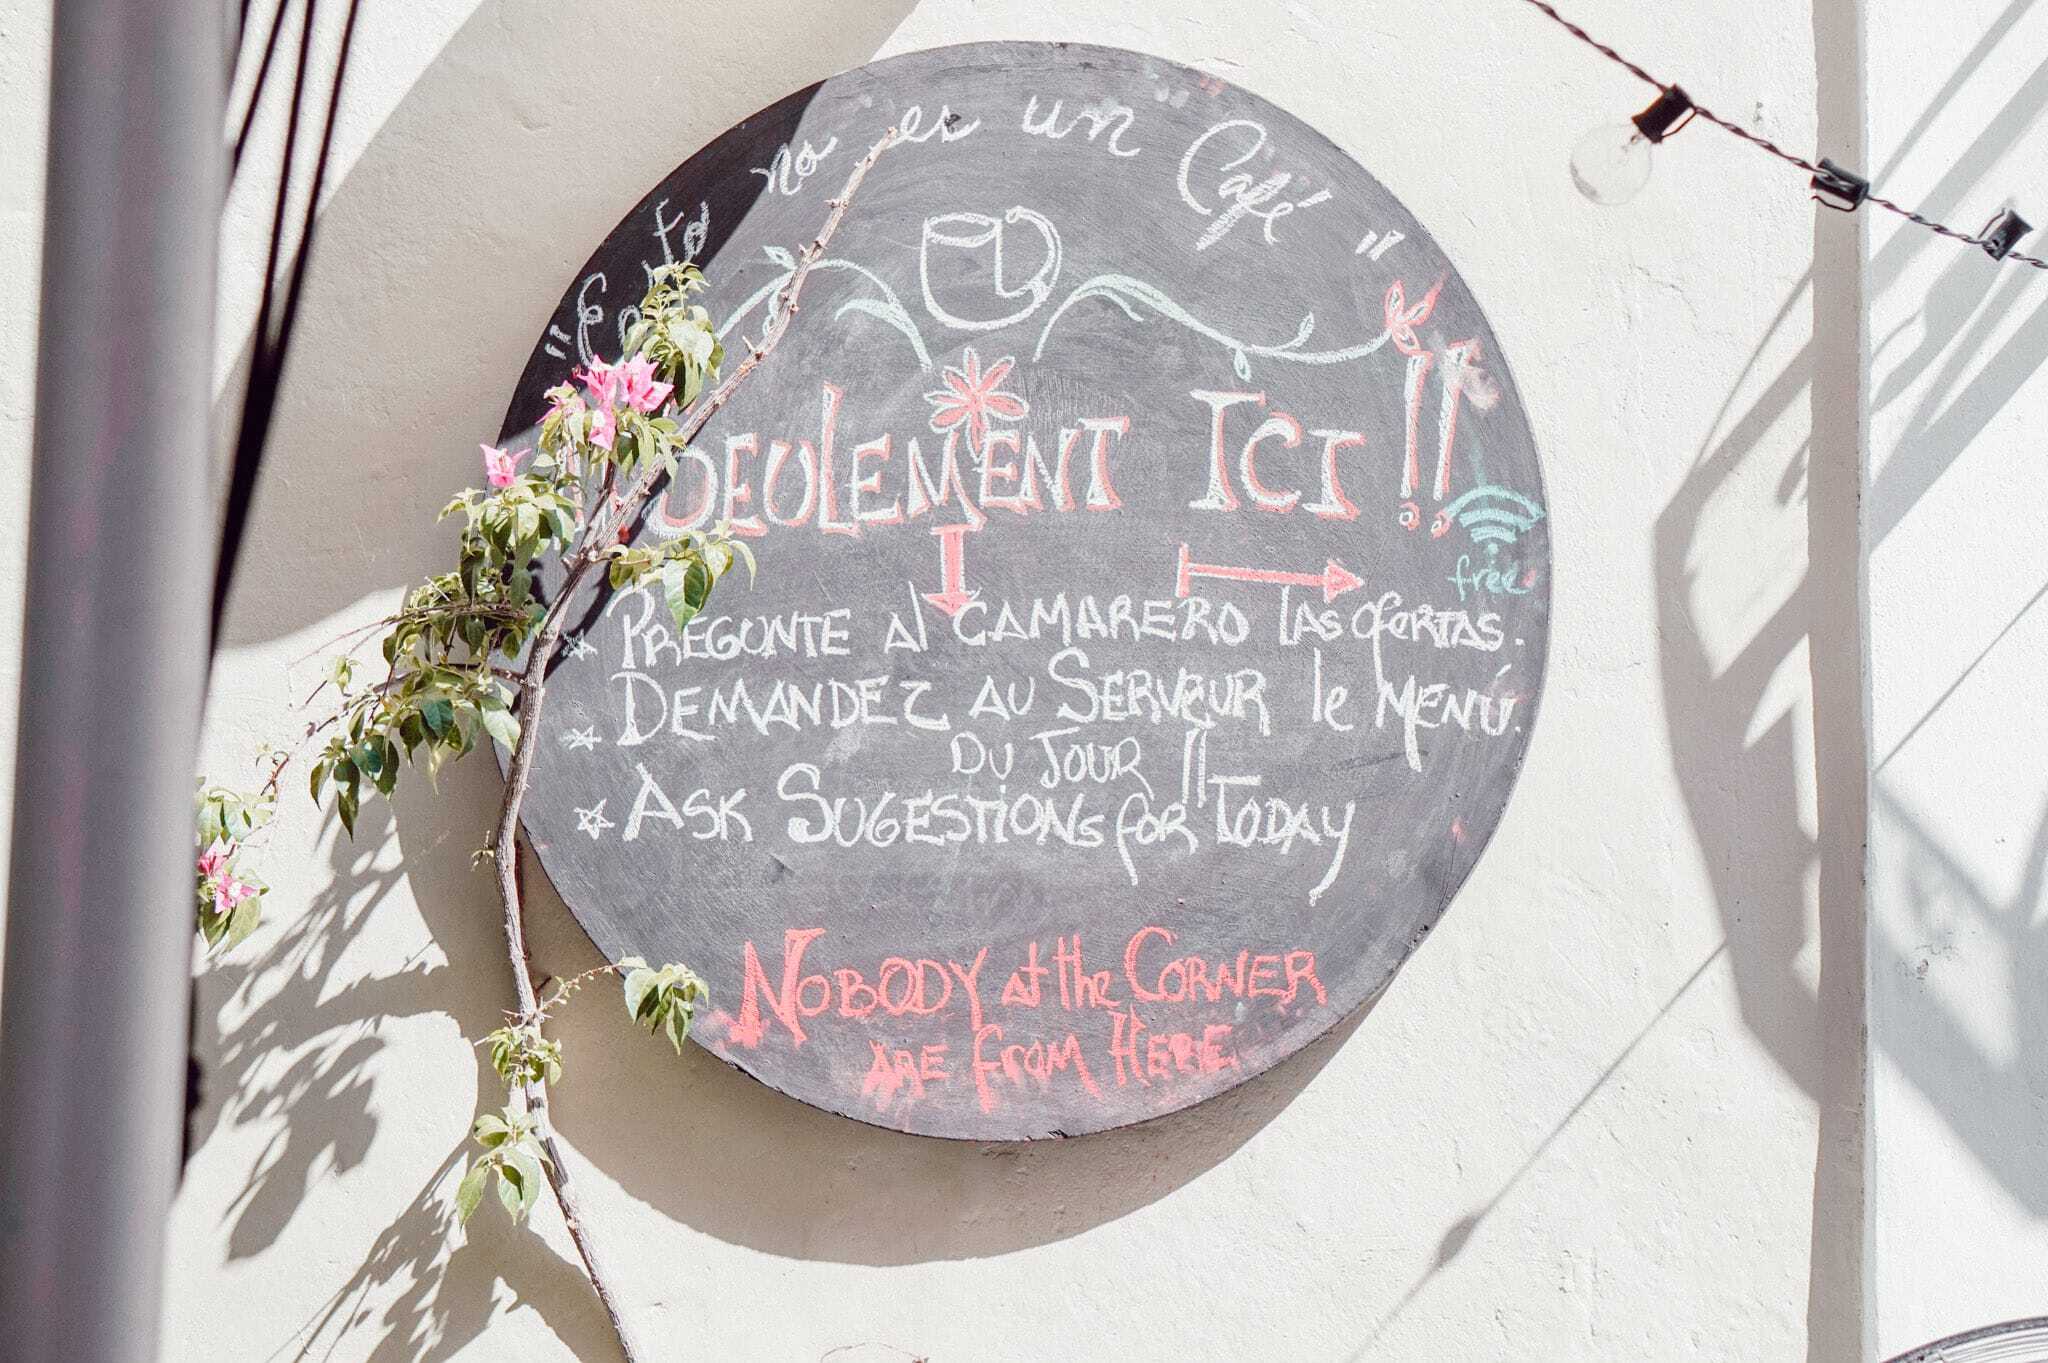 "Esto no es un Café"
SEULEMENT ICI !!
free
PREGUNTE Al CAMARERO lAS OfERTAS.
DEMANDEZ AU SERVEUR le MENÚ.
DU JOUR !!
ASK SUGESTiONS for TODAY
NOBODY at the CORNER
ARE from HERE